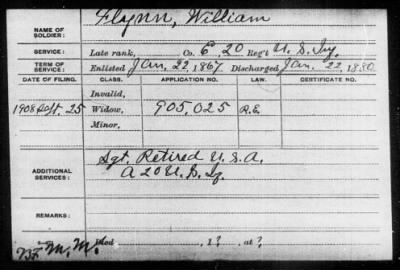 NAME OF SOLDIER: Flynn, William
SERVICE: Late rank, Co. G, 20 Reg't U.S. Inf.
TERM OF SERVICE: Enlisted Jan. 22, 1867. Discharged Jan. 22, 1880
DATE OF FILING. CLASS. APPLICATION NO. LAW. CERTIFICATE NO.
Invalid,
1908 Sept. 25 Widow, 905,025 R.E.
Minor,
ADDITIONAL SERVICES: Sgt. Retired U.S.A.
A 20 U.S. Inf.
REMARKS:
Died , 1 ? at ?